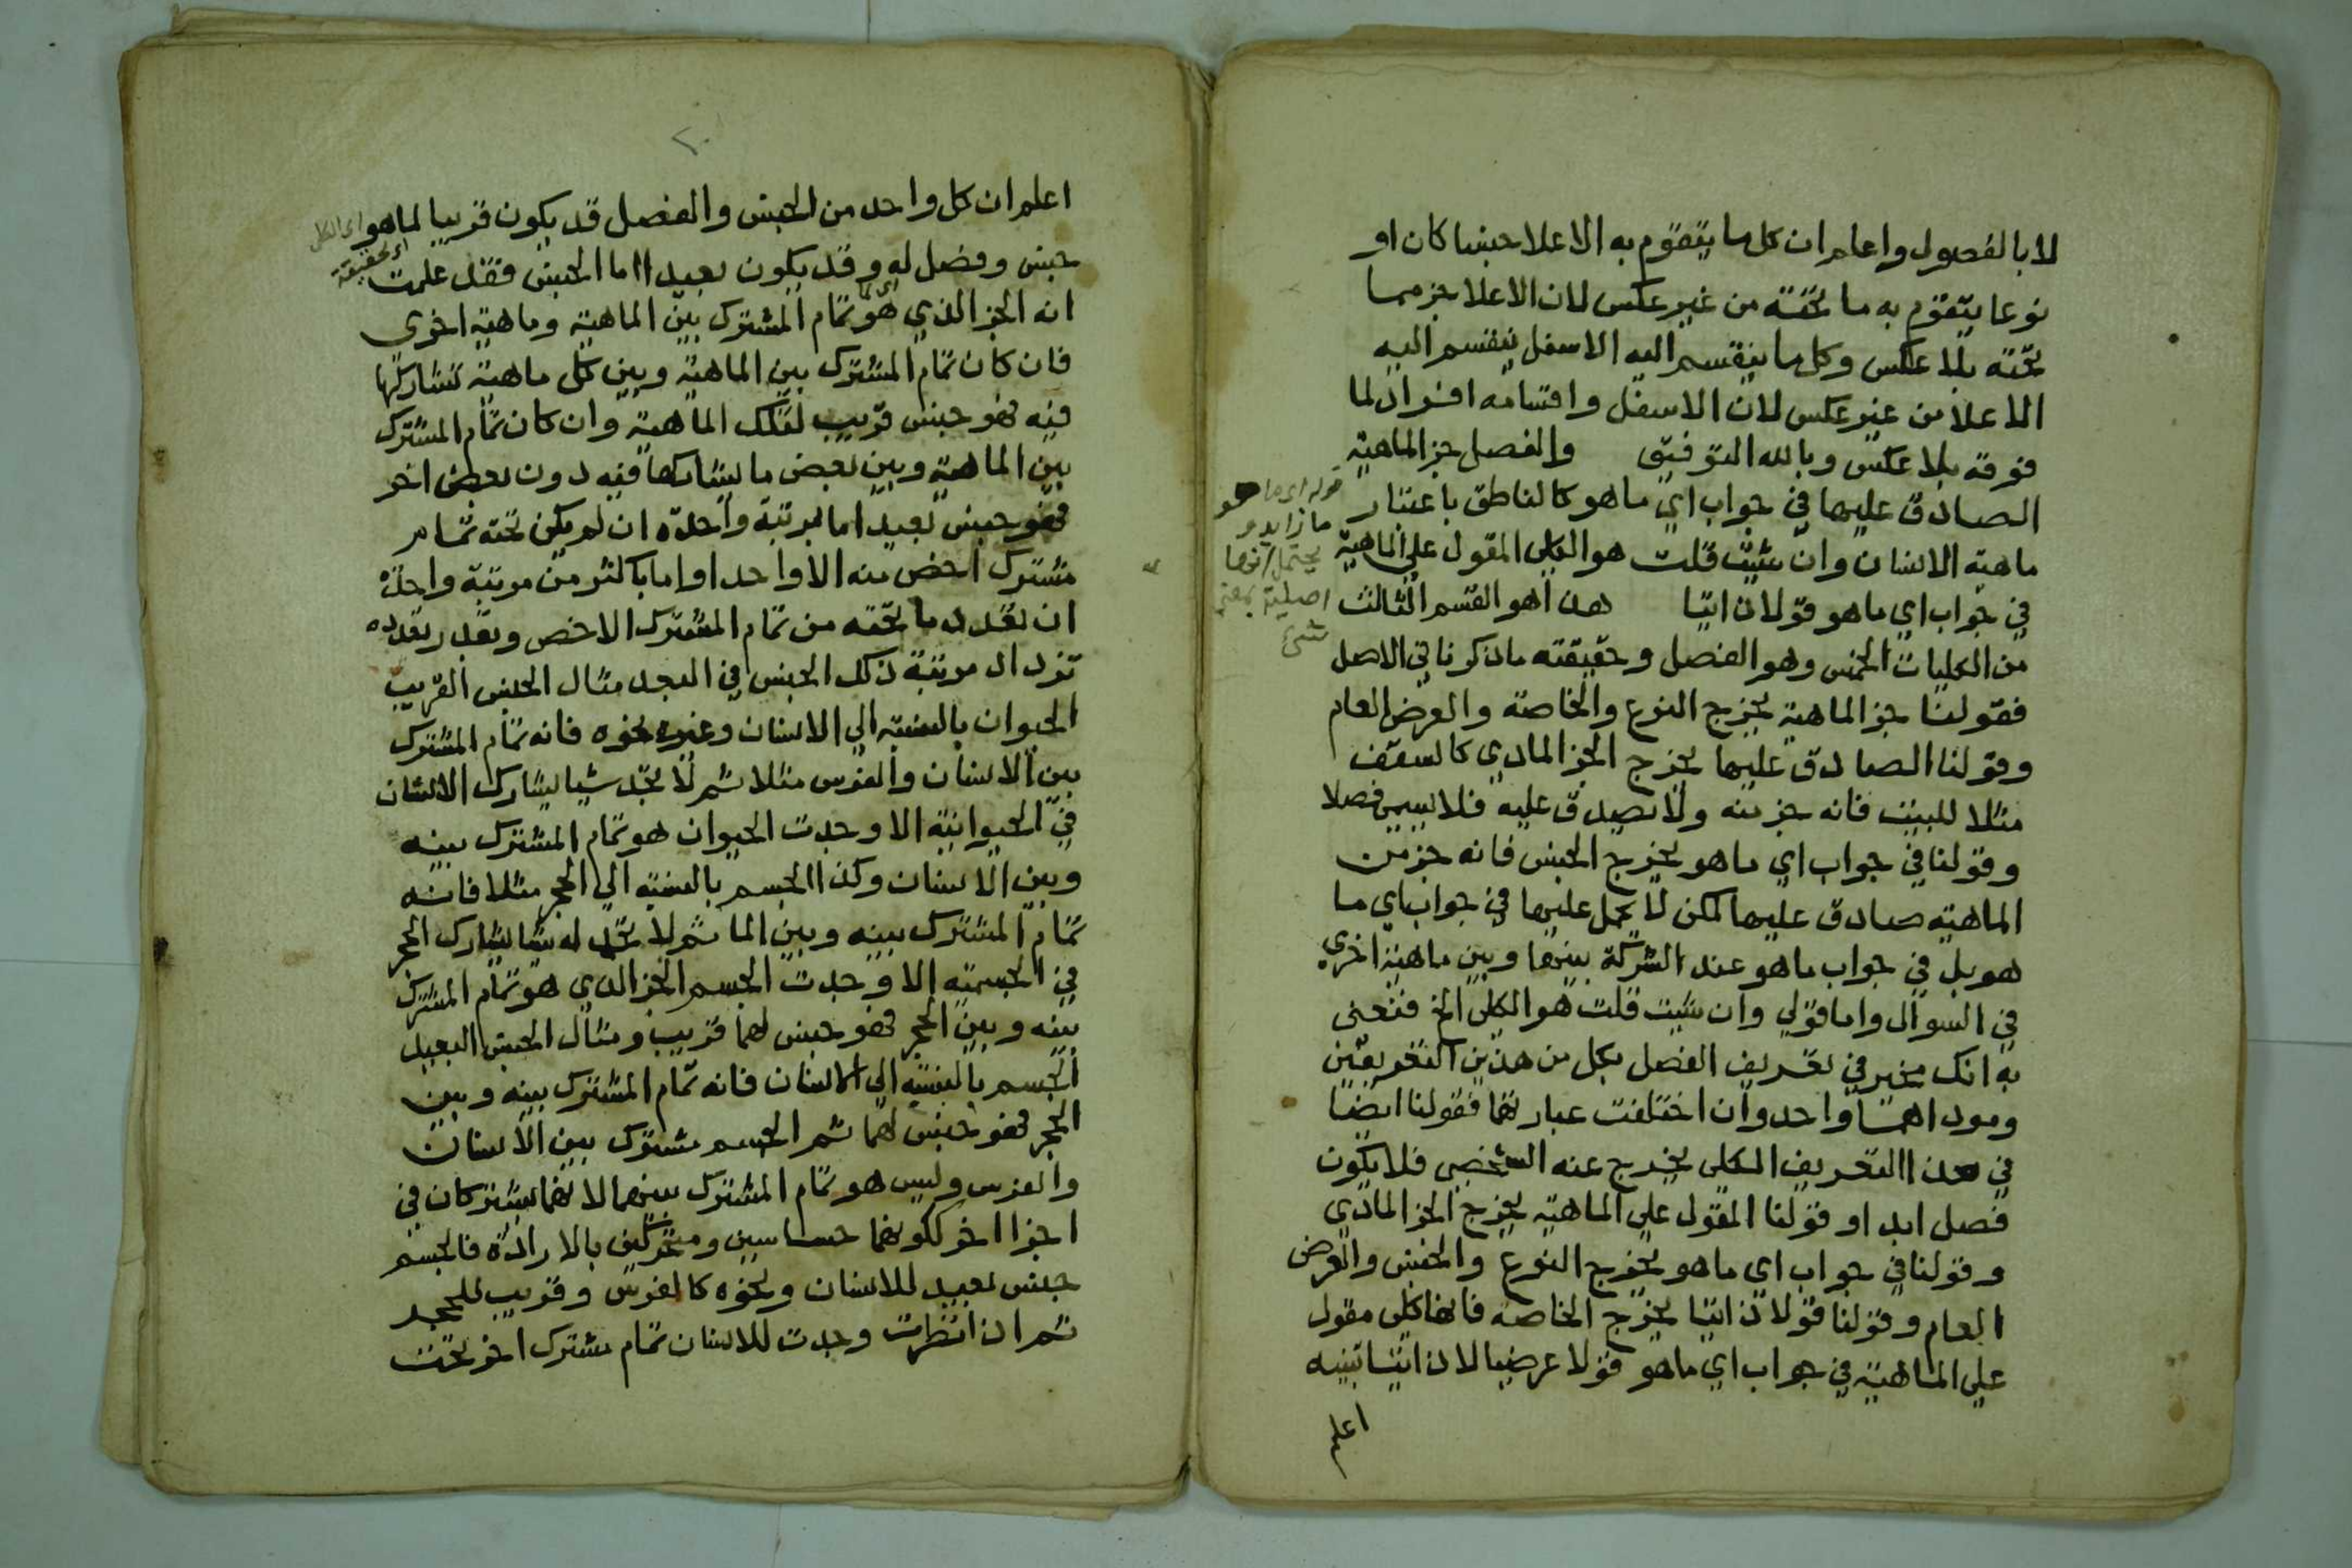 لا بالفصول واعلم ان كل ما يتقوم به الاعلا جنسا كان او
نوعا يتقوم به ما تحته من غير عكس لان الاعلا جز مما
تحته بلا عكس وكل ما ينقسم اليه الاسفل ينقسم اليه
الاعلا من غير عكس لان الاسفل واقسامه افراد لما
فوقه بلا عكس وبالله التوفيق والفصل جز الماهية
الصادق عليها في جواب اي ما هو كالناطق باعتبار
ماهية الانسان وان شيت قلت هو الكلي المقول علي الماهية
في جواب اي ما هو قولا ذاتيا هذا هو القسم الثالث
من الكليات الخمس وهو الفصل وحقيقته ما ذكرنا في الاصل
فقولنا جز الماهية يخرج النوع والخاصة والعرض العام
وقولنا الصادق عليها يخرج الجز المادي كالسقف
مثلا للبيت فانه جز منه ولا يصدق عليه فلا يسمى فصلا
وقولنا في جواب اي ما هو يخرج الجنس فانه جز من
الماهية صادق عليها لكن لا يحمل عليها في جواب اي ما
هو بل في جواب ما هو عند الشركة بينها وبين ماهية اخري
في السوال واما قولي وان شيت قلت هو الكلي الخ فنعني
به انك مخير في تعريف الفصل بكل من هذين التعريفين
ومودا هما واحد وان اختلفت عبارتهما فقولنا ايضا
في هذا التعريف الكلي يخرج عنه الشخصي فلا يكون
فصل ابدا وقولنا المقول علي الماهية يخرج الجز المادي
وقولنا في جواب اي ما هو يخرج النوع والجنس والعرض
العام وقولنا قولا ذاتيا يخرج الخاصة فانها كلي مقول
علي الماهية في جواب اي ما هو قولا عرضيا لا ذاتيا تنبيه
اعلم
قوله اي ما هو
ما زايد و
يحتمل انها
اصلية بمعنى
شي
اعلم ان كل واحد من الجنس والفصل قد يكون قريبا لما هو
اي الكل
اي لحقيقة
جنس وفصل له وقد يكون بعيدا اما الجنس فقد علمت
انه الجز الذي هو تمام المشترك بين الماهية وماهية اخرى
فان كان تمام المشترك بين الماهية وبين كل ماهية تشاركها
فيه فهو جنس قريب لتلك الماهية وان كان تمام المشترك
بين الماهية وبين بعض ما يشاركها فيه دون بعض اخر
فهو جنس بعيد اما بمرتبة واحدة ان لم يكن تحته تمام
مشترك اخص منه الا واحد او اما باكثر من مرتبة واحدة
ان تعدد ما تحته من تمام المشترك الاخص وبقدر تعدده
تزداد مرتبة ذلك الجنس في البعد مثال الجنس القريب
الحيوان بالنسبة الي الانسان وغيره نحوه فانه تمام المشترك
بين الانسان والفرس مثلا ثم لا تجد شيا يشارك الانسان
في الحيوانية الا وجدت الحيوان هو تمام المشترك بينه
وبين الانسان وكذا الجسم بالنسبة الي الحجر مثلا فانه
تمام المشترك بينه وبين الما ثم لا تجد له شيا يشارك الحجر
في الجسمية الا وجدت الجسم الجز الذي هو تمام المشترك
بينه وبين الحجر فهو جنس لهما قريب ومثال الجنس البعيد
الجسم بالنسبة الي الانسان فانه تمام المشترك بينه وبين
الحجر فهو جنس لهما ثم الجسم مشترك بين الانسان
والفرس وليس هو تمام المشترك بينهما لانهما يشتركان في
اجزا اخر ككونهما حساسين ومتحركين بالارادة فالجسم
جنس بعيد للانسان ونحوه كالفرس وقريب للحجر
ثم ان انظرت وجدت للانسان تمام مشترك اخر تحت